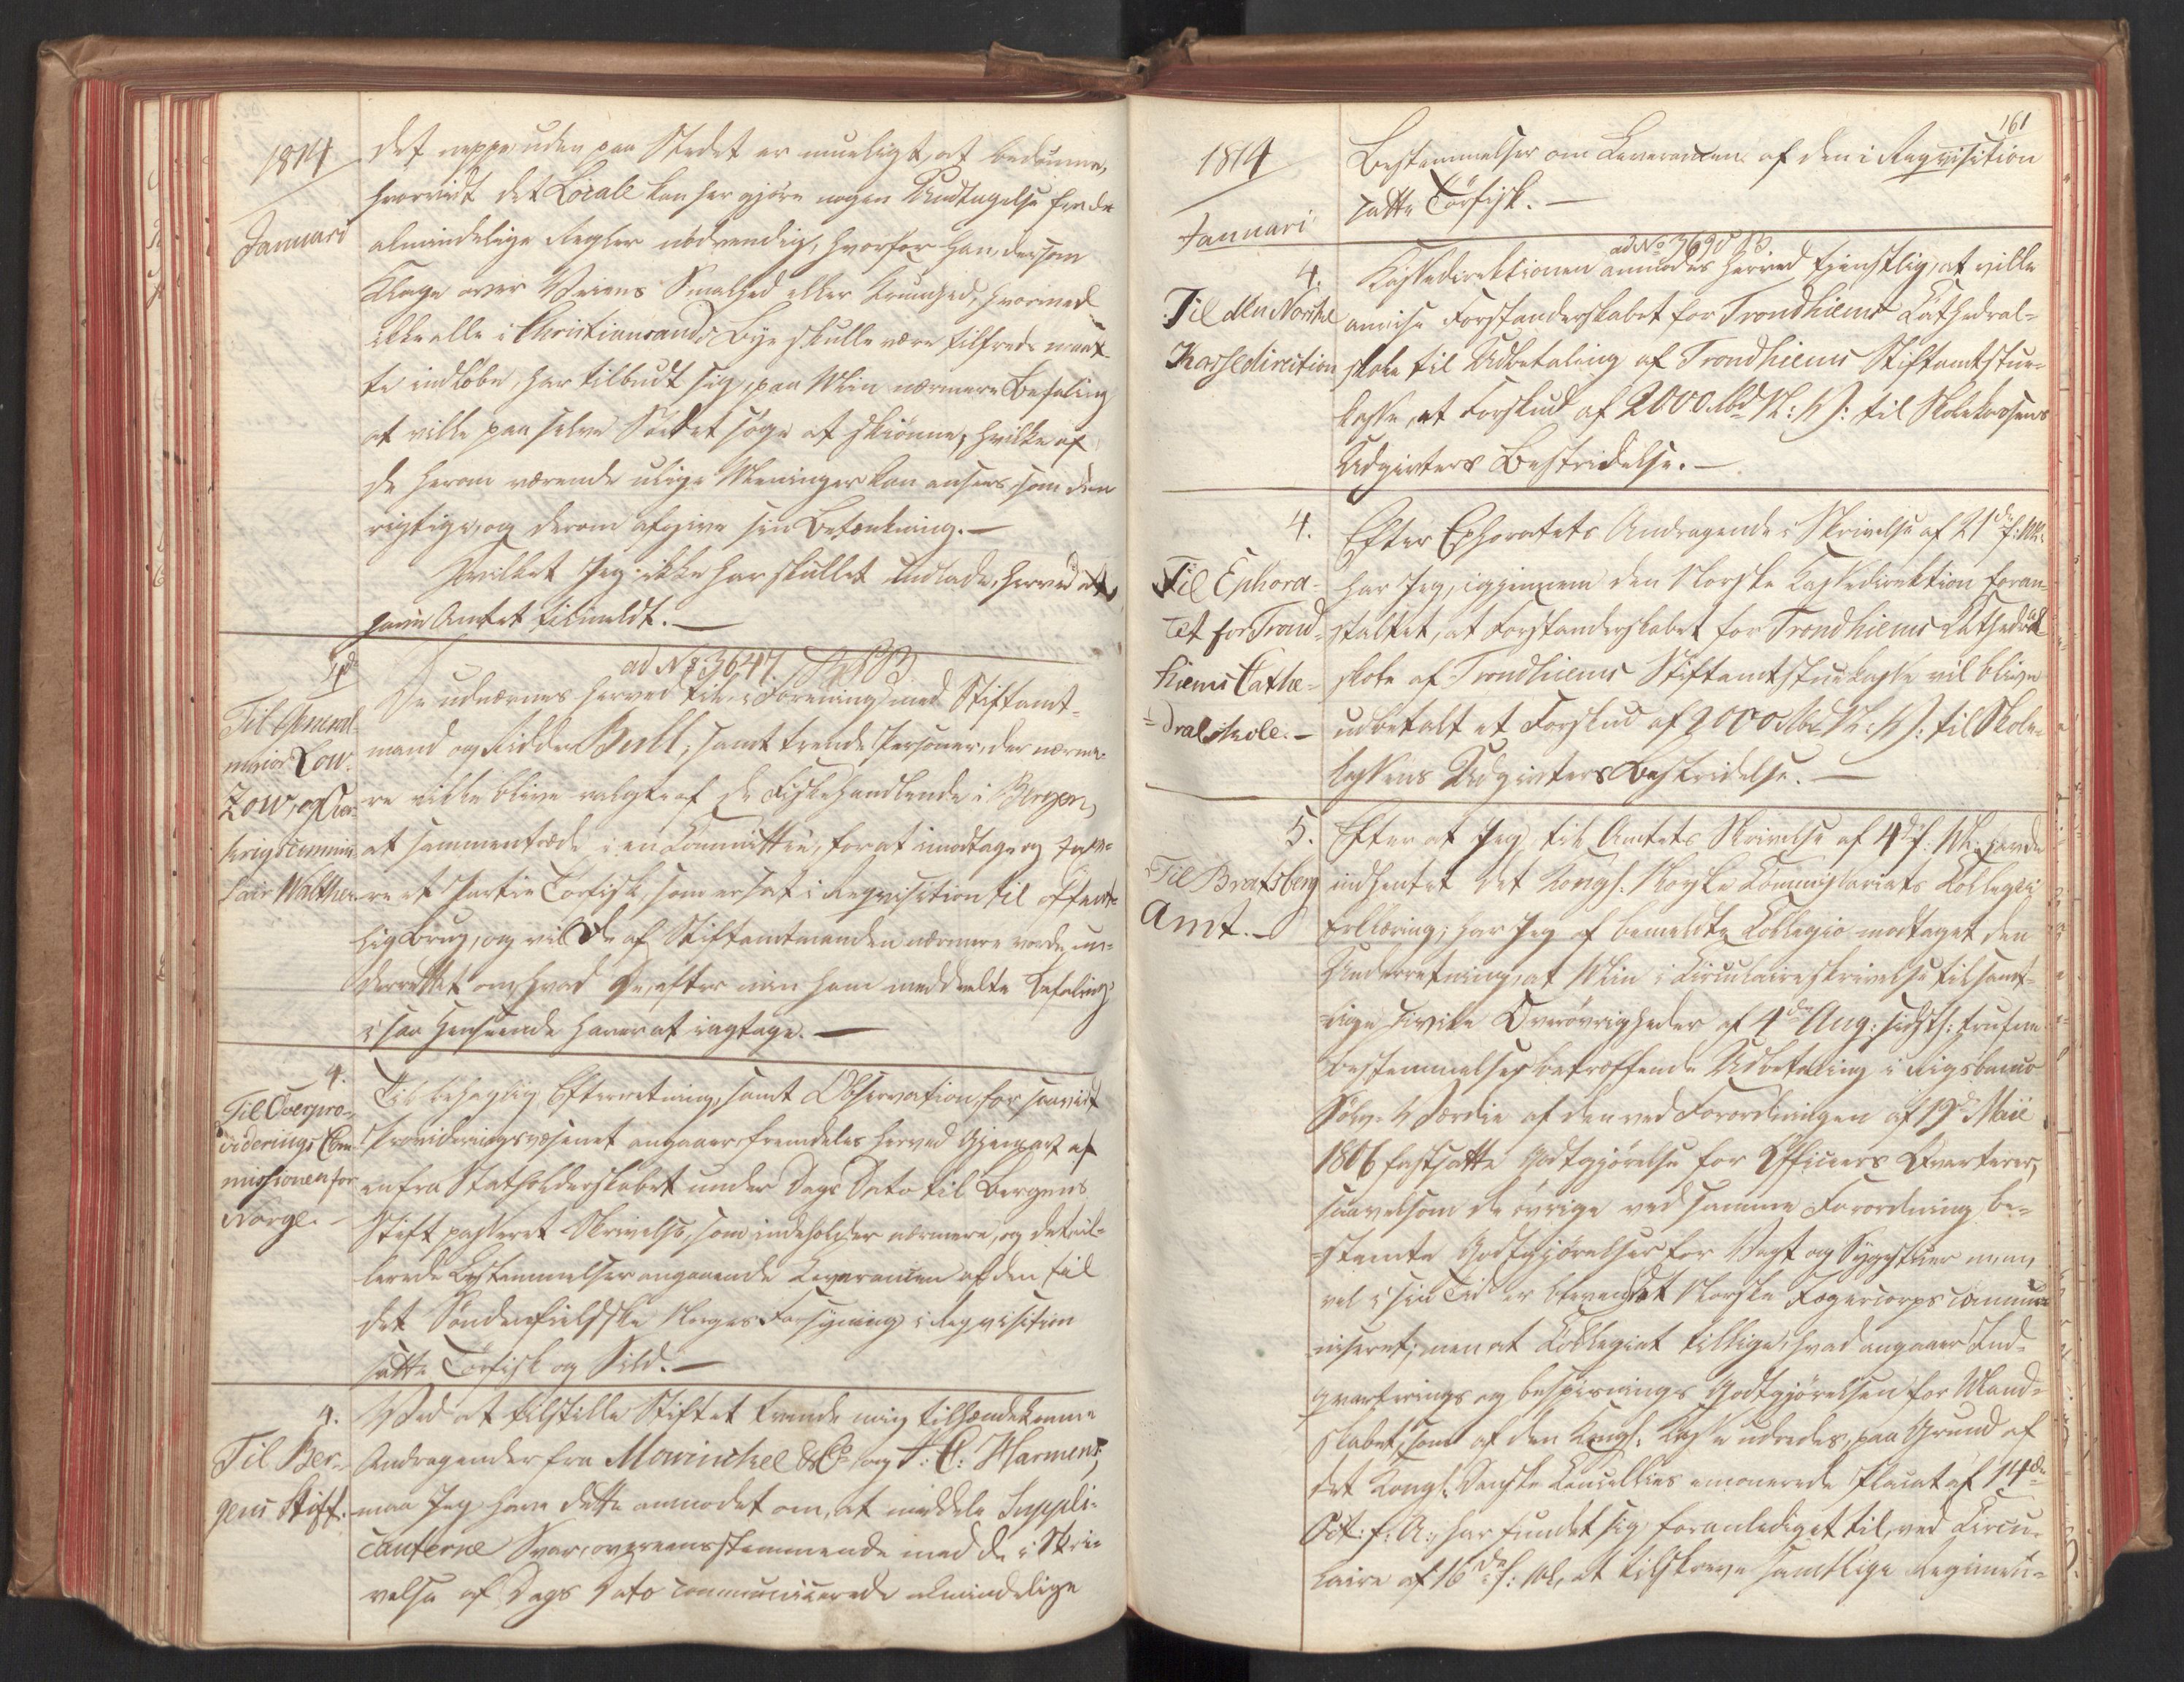 1814
Januari
det neppe uden paa Stedet er mueligt at bedømme,
hvorvidt det Locale kan her gjøre nogen Undtagelse fra de
almindelige Regler nödvendig, hvorfor han, dersom
Klage over Veiens Smalhed eller Krumhed, hvormed
ikke alle i Christiansands Bye skulle være tilfreds maat-
te indløbe, har tilbudt sig, paa Min nærmere Befaling
at ville paa selve Stedet søge at skiønne, hvilke af
de herom værende ulige Meninger kan ansees som den
rigtige, og derom afgive sin Betænkning.—
Hvilket Jeg ikke har skullet undlade, herved at
have Amtet tilmeldt.—
4de
Til General
maior Low-
zow, og Over-
krigscommis-
sair Walther
ad No 3647
De udnævnes herved til, i Forening med Stiftamt-
mand og Ridder Bull, samt trende Personer, der nærme-
re ville blive valgte af de Fiskehandlende i Bergen,
at sammentræde i en Committee, for at imodtage og
re et Partie Tørfisk, som er sat i Reqvisition til offent-
lig Brug, og vil De af Stiftamtmanden nærmere vorde un-
derrettet om, hvad De, efter min ham meddeelte Befaling
i saa Henseende haver at iagttage.—
4.
Til Overpro-
viderings Com-
missionen for
Norge.—
Til behagelig Efterretning, samt Observation, for saavidt
Provideringsvæsenet angaaer, fremdeles herved Gjenpart af
en fra Statholderskabet under Dags Dato til Bergens
Stift passeret Skrivelse, som indeholder nærmere, og detail-
lerede Bestemmelser angaaende Leverancen af den til
det Søndenfieldske Norges Forsyning i Reqvisition
satte Tørfisk og Sild.—
4.
Til Ber-
gens Stift.
Ved at tilstille Stiftet tvende mig tilhændekomne
Andragender fra Mowinckel & Co og A: C: Harmens,
maa Jeg have dette anmodet om, at meddele Suppli-
canterne Svar, overeensstemmende med de i Skri-
velse af Dags Dato communicerede almindelige
161
1814
Januari
Bestemmelser om Leverancen af den i Reqvisition
satte Tørfisk.—
4.
Til den Norske
Kassedirection
ad No 3690
Kassedirektionen anmodes herved tjenstlig, at ville
anvise Forstanderskabet for Trondhiems Cathedral-
skole til Udbetaling af Trondhiems Stiftamtstue-
kasse, et Forskud af 2000 Rbd N: V: til Skolekassens
Udgivters Bestridelse.—
4.
Til Ephora-
tet for Trond-
hiems Cathe-
dralskole.—
Efter Ephoratets Andragende i Skrivelse af 21de f: M:
har Jeg, igjennem den Norske Kassedirektion foran-
staltet, at Forstanderskabet for Trondhiems Cathedral
skole af Trondhiems Stiftamtstuekasse vil blive
udbetalt et Forskud af 2000 Rbd N: V: til Skole-
kassens Udgivters Bestridelse.—
5.
Til Bratsberg
Amt.—
Efter at Jeg til Amtets Skrivelse af 4de f: M: havde
indhentet det Kongl: Norske Commissariats Collegii
Erklæring, har Jeg af bemeldte Collegio modtaget den
Underretning, at Min i Circulaireskrivelse til samt-
lige Civile Overøvrigheder af 4de Aug: sidstl: trufne
Bestemmelser betræffende Udbetaling i Rigsbank
Sølv-Værdie af den ved Forordningen af 19de Maii
1806 fastsatte Godtgjörelse for Officeers Qvarterer,
saavelsom de øvrige ved samme Forordning be-
stemte Godtgjörelser for Vagt og Sygestuer m. m.
vel i sin Tid er bleven det Norske Jægercorps commu-
niceret; men at Collegiet tillige, hvad angaaer Ind-
qvarterings og bespisnings Godtgjörelsen for Mand-
skabet, som af den Kongl: Kasse udredes, paa Grund af
det Kongl: Danske Cancellies emanerede Placat af 14de
Oct: f: A:, har fundet sig foranlediget til, ved Circu-
laire af 16de f: M:, at tilskrive samtlige Regiment-